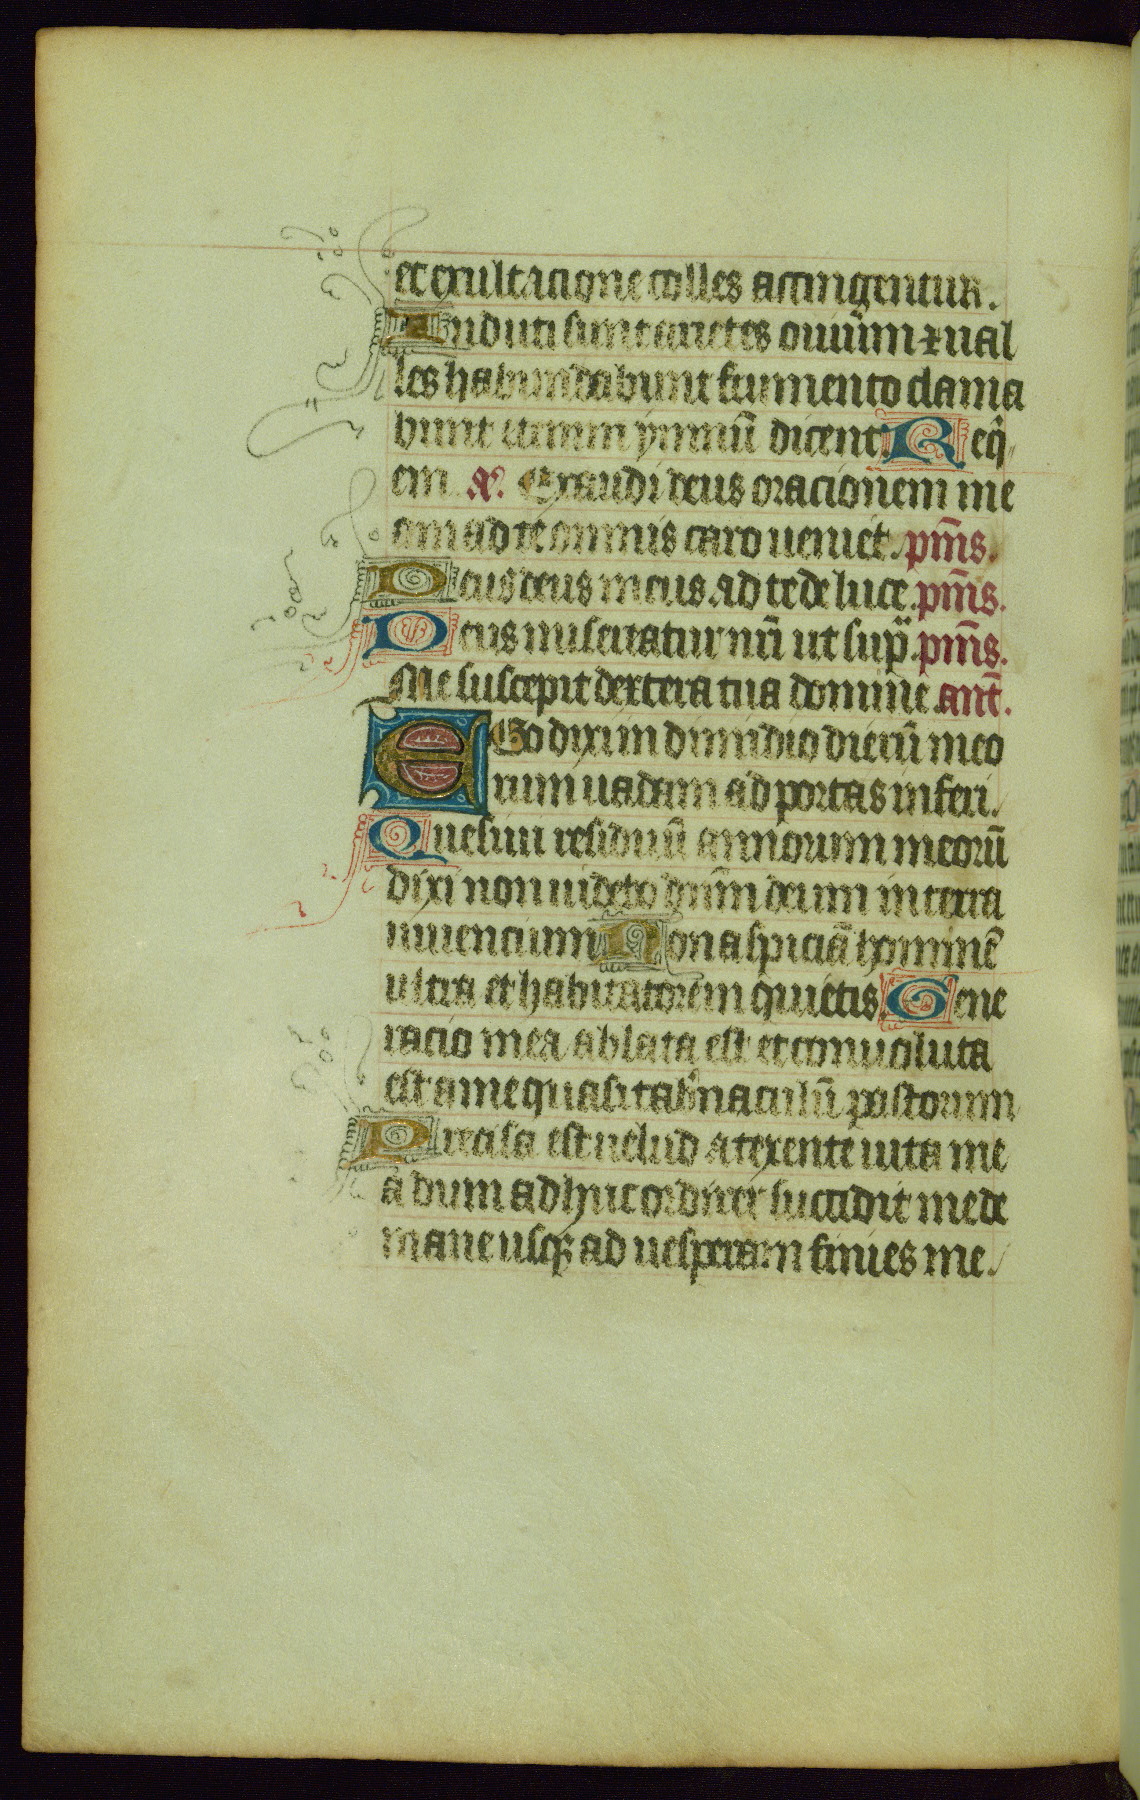 et exultacione colles accingentur.
Induti sunt arietes oviūm ⁊ ual
les habundabunt frumento clama
bunt etenim ymnū dicent. Req̄
em. A. Exaudi deus oracionem me
am ad te omnis caro ueniet. pm̄s.
Deus deus meus ad te de luce. pm̄s.
Deus misereatur nr̄i ut sup̄. pm̄s.
Me suscepit dextera tua domine. ant̄.
EGo dixi in dimidio dierū meo
rum uadam ad portas inferi.
Quesiui residuū annorum meorū
dixi non uidebo dn̄m deum in terra
uiuencium Non aspiciā hominē
ultra et habitatorem quietis. Gene
racio mea ablata est et conuoluta
est a me quasi tab̄naculū pastorum
Precisa est uelud a texente uita me
a dum adhuc ordirer succidit me de
mane usq₃ ad uesperam finies me.